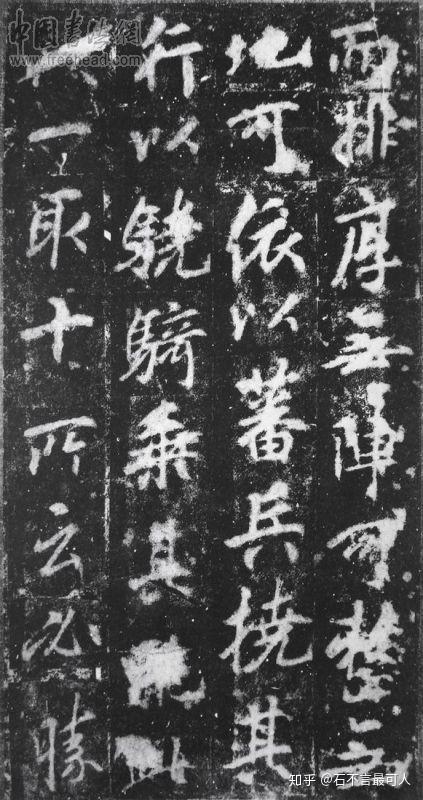 中国书法网
www.freehead.com
而排無陣可整無
地可依以蕃兵撓其
行以驍騎乘其亂此
一取十所云必勝
知乎 @石不言最可人